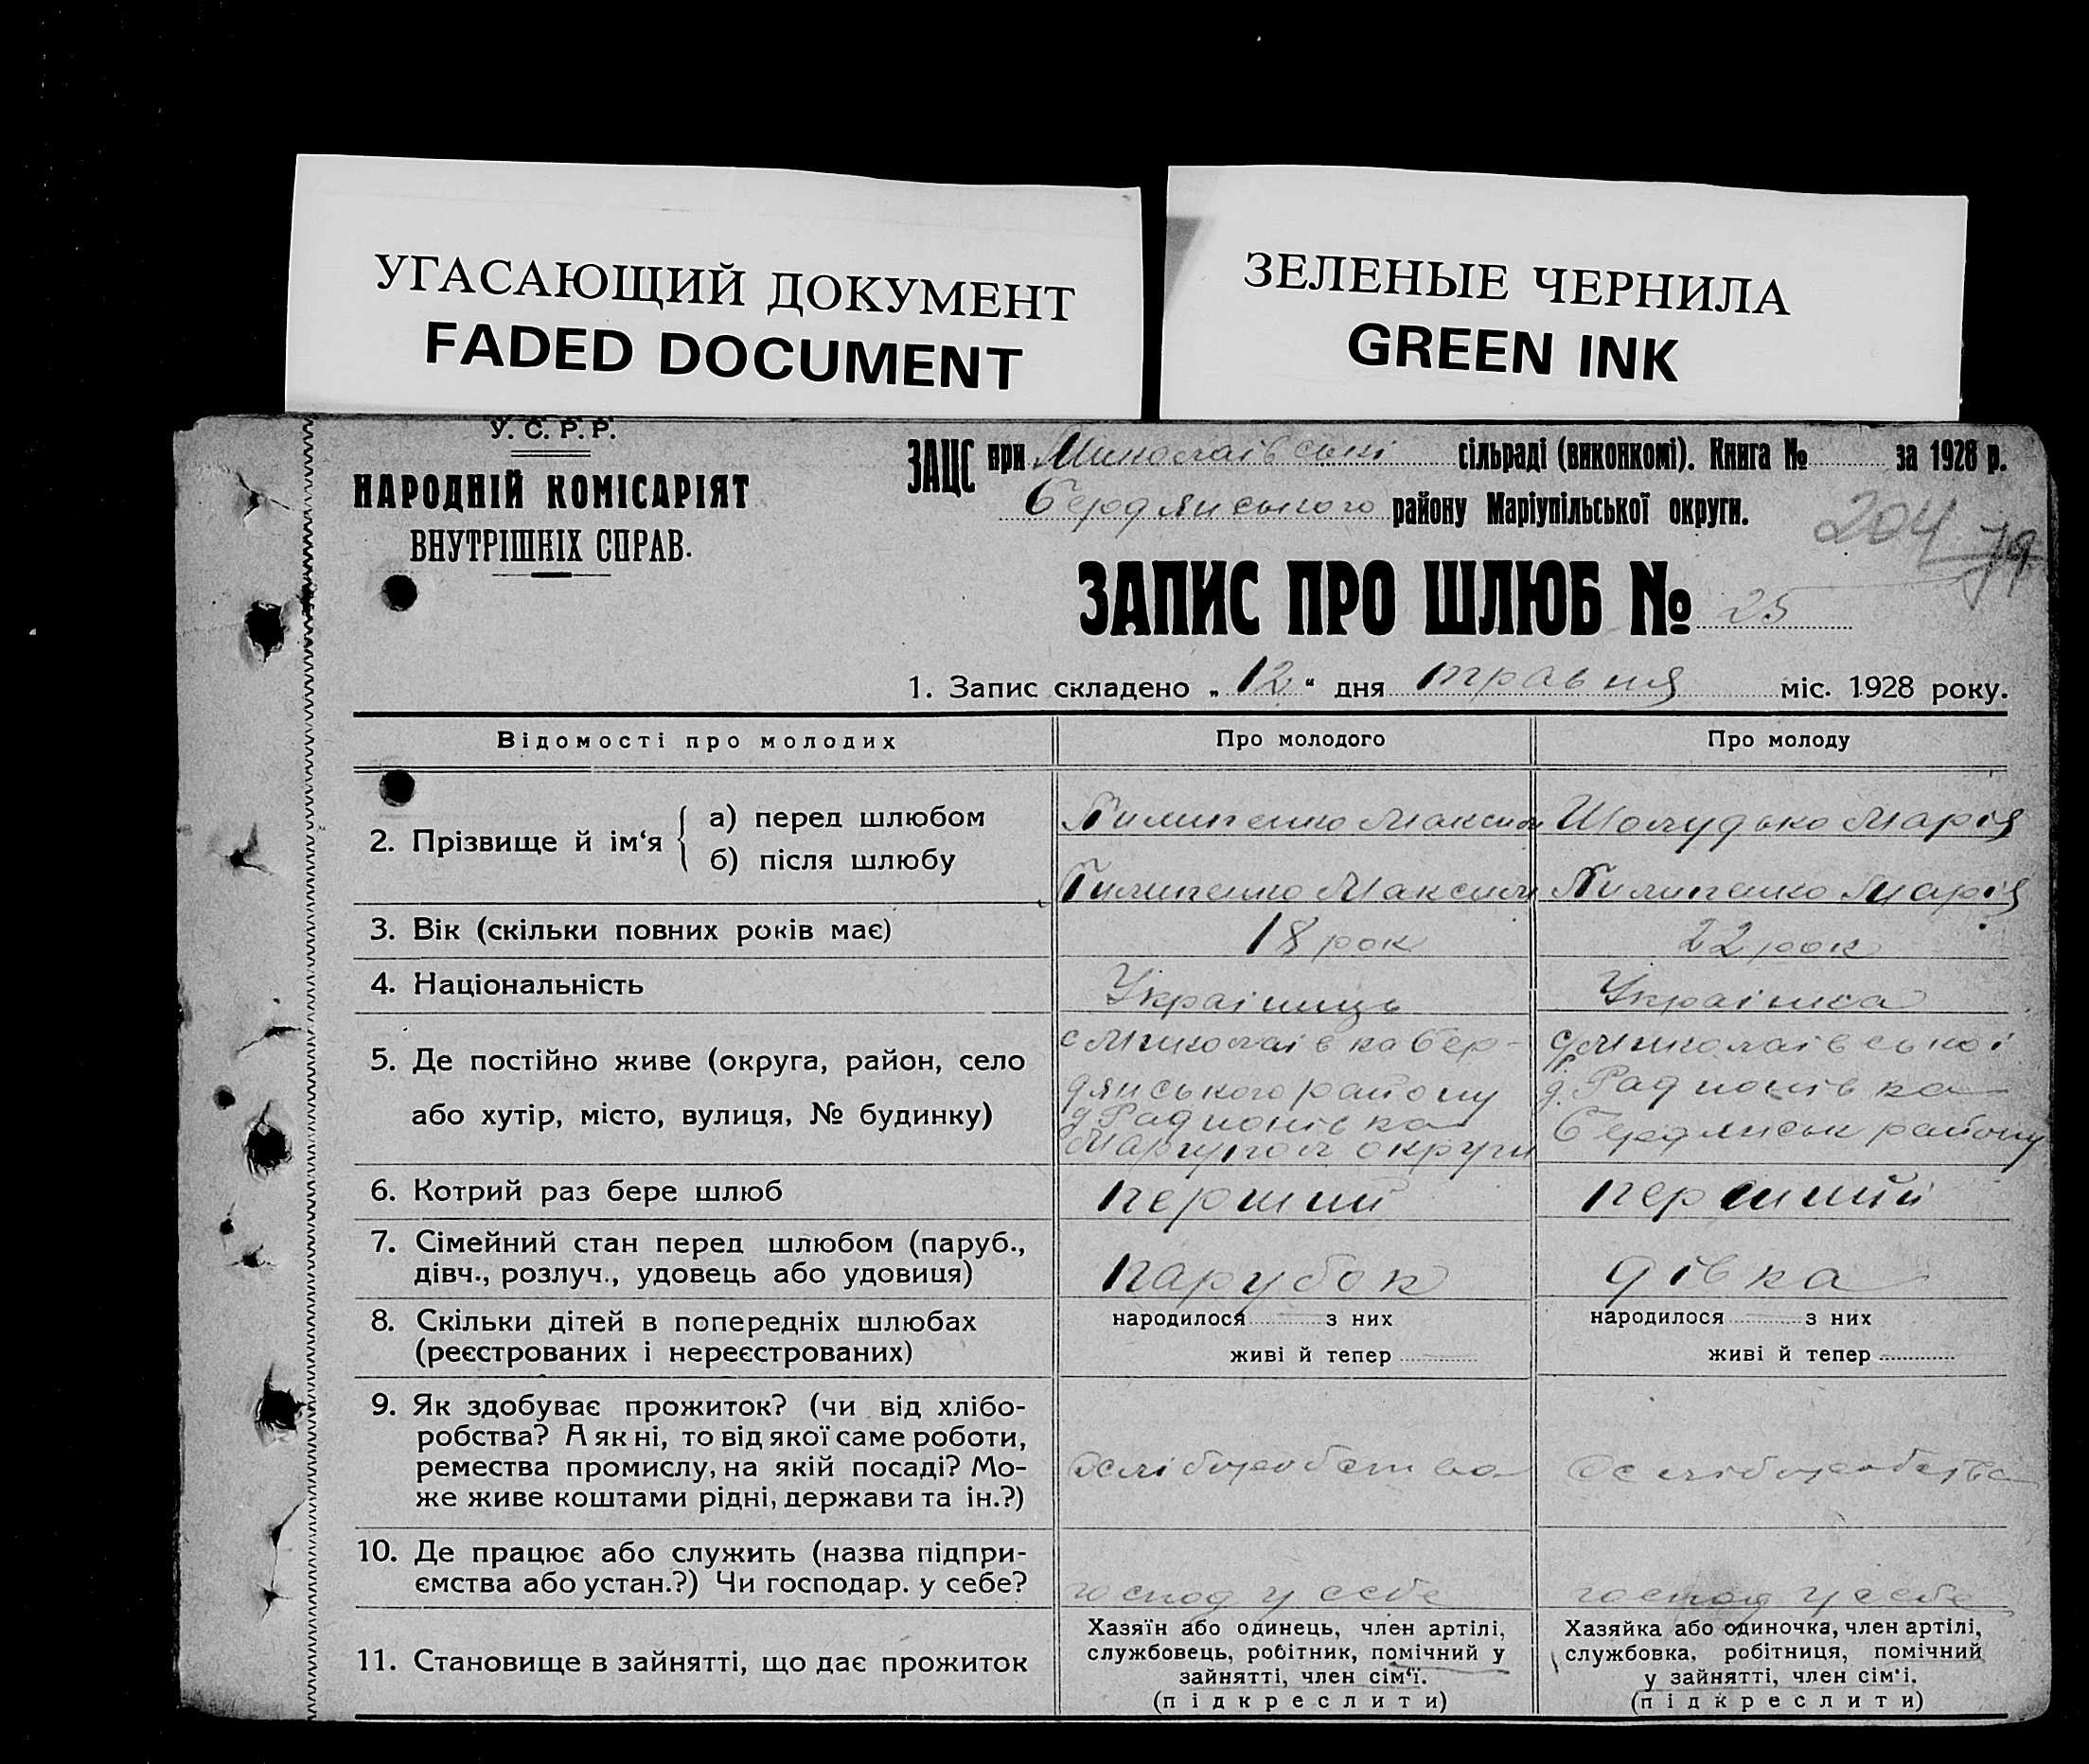 УГАСАЮЩИЙ ДОКУМЕНТ
FADED DOCUMENT
ЗЕЛЕНЫЕ ЧЕРНИЛА
GREEN INK
У. С. Р. Р.
НАРОДНІЙ КОМІСАРІЯТ
ВНУТРІШНІХ СПРАВ.
ЗАЦС при Миколаівські сільраді (виконкомі). Книга № за 1928 р.
Бердянського району Маріупільської округи.
204
79
ЗАПИС ПРО ШЛЮБ № 25
1. Запис складено „ 12 “ дня травня міс. 1928 року.
Відомості про молодих
Про молодого
Про молоду
2. Прізвище й ім‘я
а) перед шлюбом
Пилипенко Максим
Шолудько Марія
б) після шлюбу
Пилипенко Максим
Пилипенко Марія
3. Вік (скільки повних років має)
18 рок
22 рок
4. Національність
Украінець
Украінка
5. Де постійно живе (округа, район, село
або хутір, місто, вулиця, № будинку)
с Миколаівка Бер-
дянського району
д Радионівка
Маріупол округи
Миколаівськоі
д. Радионівка
Бердянськ району
6. Котрий раз бере шлюб
перший
перший
7. Сімейний стан перед шлюбом (паруб.,
дівч., розлуч., удовець або удовиця)
парубок
дівка
8. Скільки дітей в попередніх шлюбах
(реєстрованих і нереєстрованих)
народилося з них
живі й тепер
народилося з них
живі й тепер
9. Як здобуває прожиток? (чи від хлібо-
робства? А як ні, то від якої саме роботи,
ремества промислу, на якій посаді? Мо-
же живе коштами рідні, держави та ін.?)
10. Де працює або служить (назва підпри-
ємства або устан.?) Чи господар. у себе?
господ у себе
господ у себе
11. Становище в зайнятті, що дає прожиток
Хазяїн або одинець, член артілі,
службовець, робітник, помічний у
зайнятті, член сім‘ї.
(підкреслити)
Хазяйка або одиночка, член артілі,
службовка, робітниця, помічний
у зайнятті, член сім‘і.
(підкреслити)